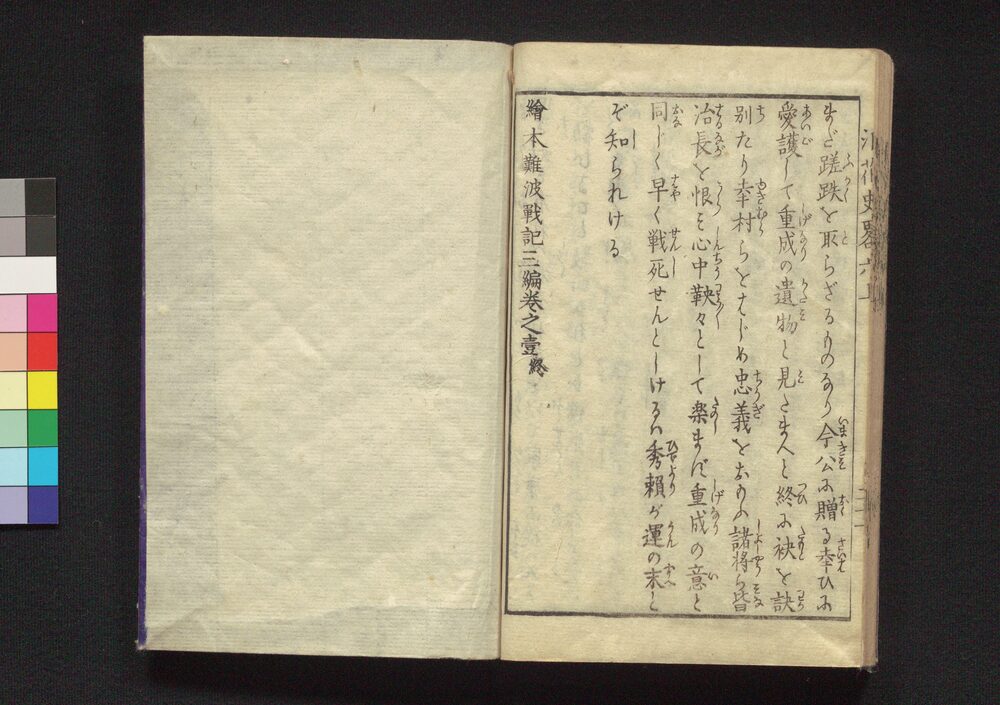 まだ蹉跌を取らざるものなり今公に贈る幸ひに
愛護して重成の遺物と見たまへと終に袂を訣
別たり幸村らをはじめ忠義をおもふ諸将ら皆
治長を恨み心中鞅々として楽まず重成の意と
同じく早く戦死せんとしけるハ秀頼が運の末と
ぞ知られける
繪本難波戰記三編卷之壹終